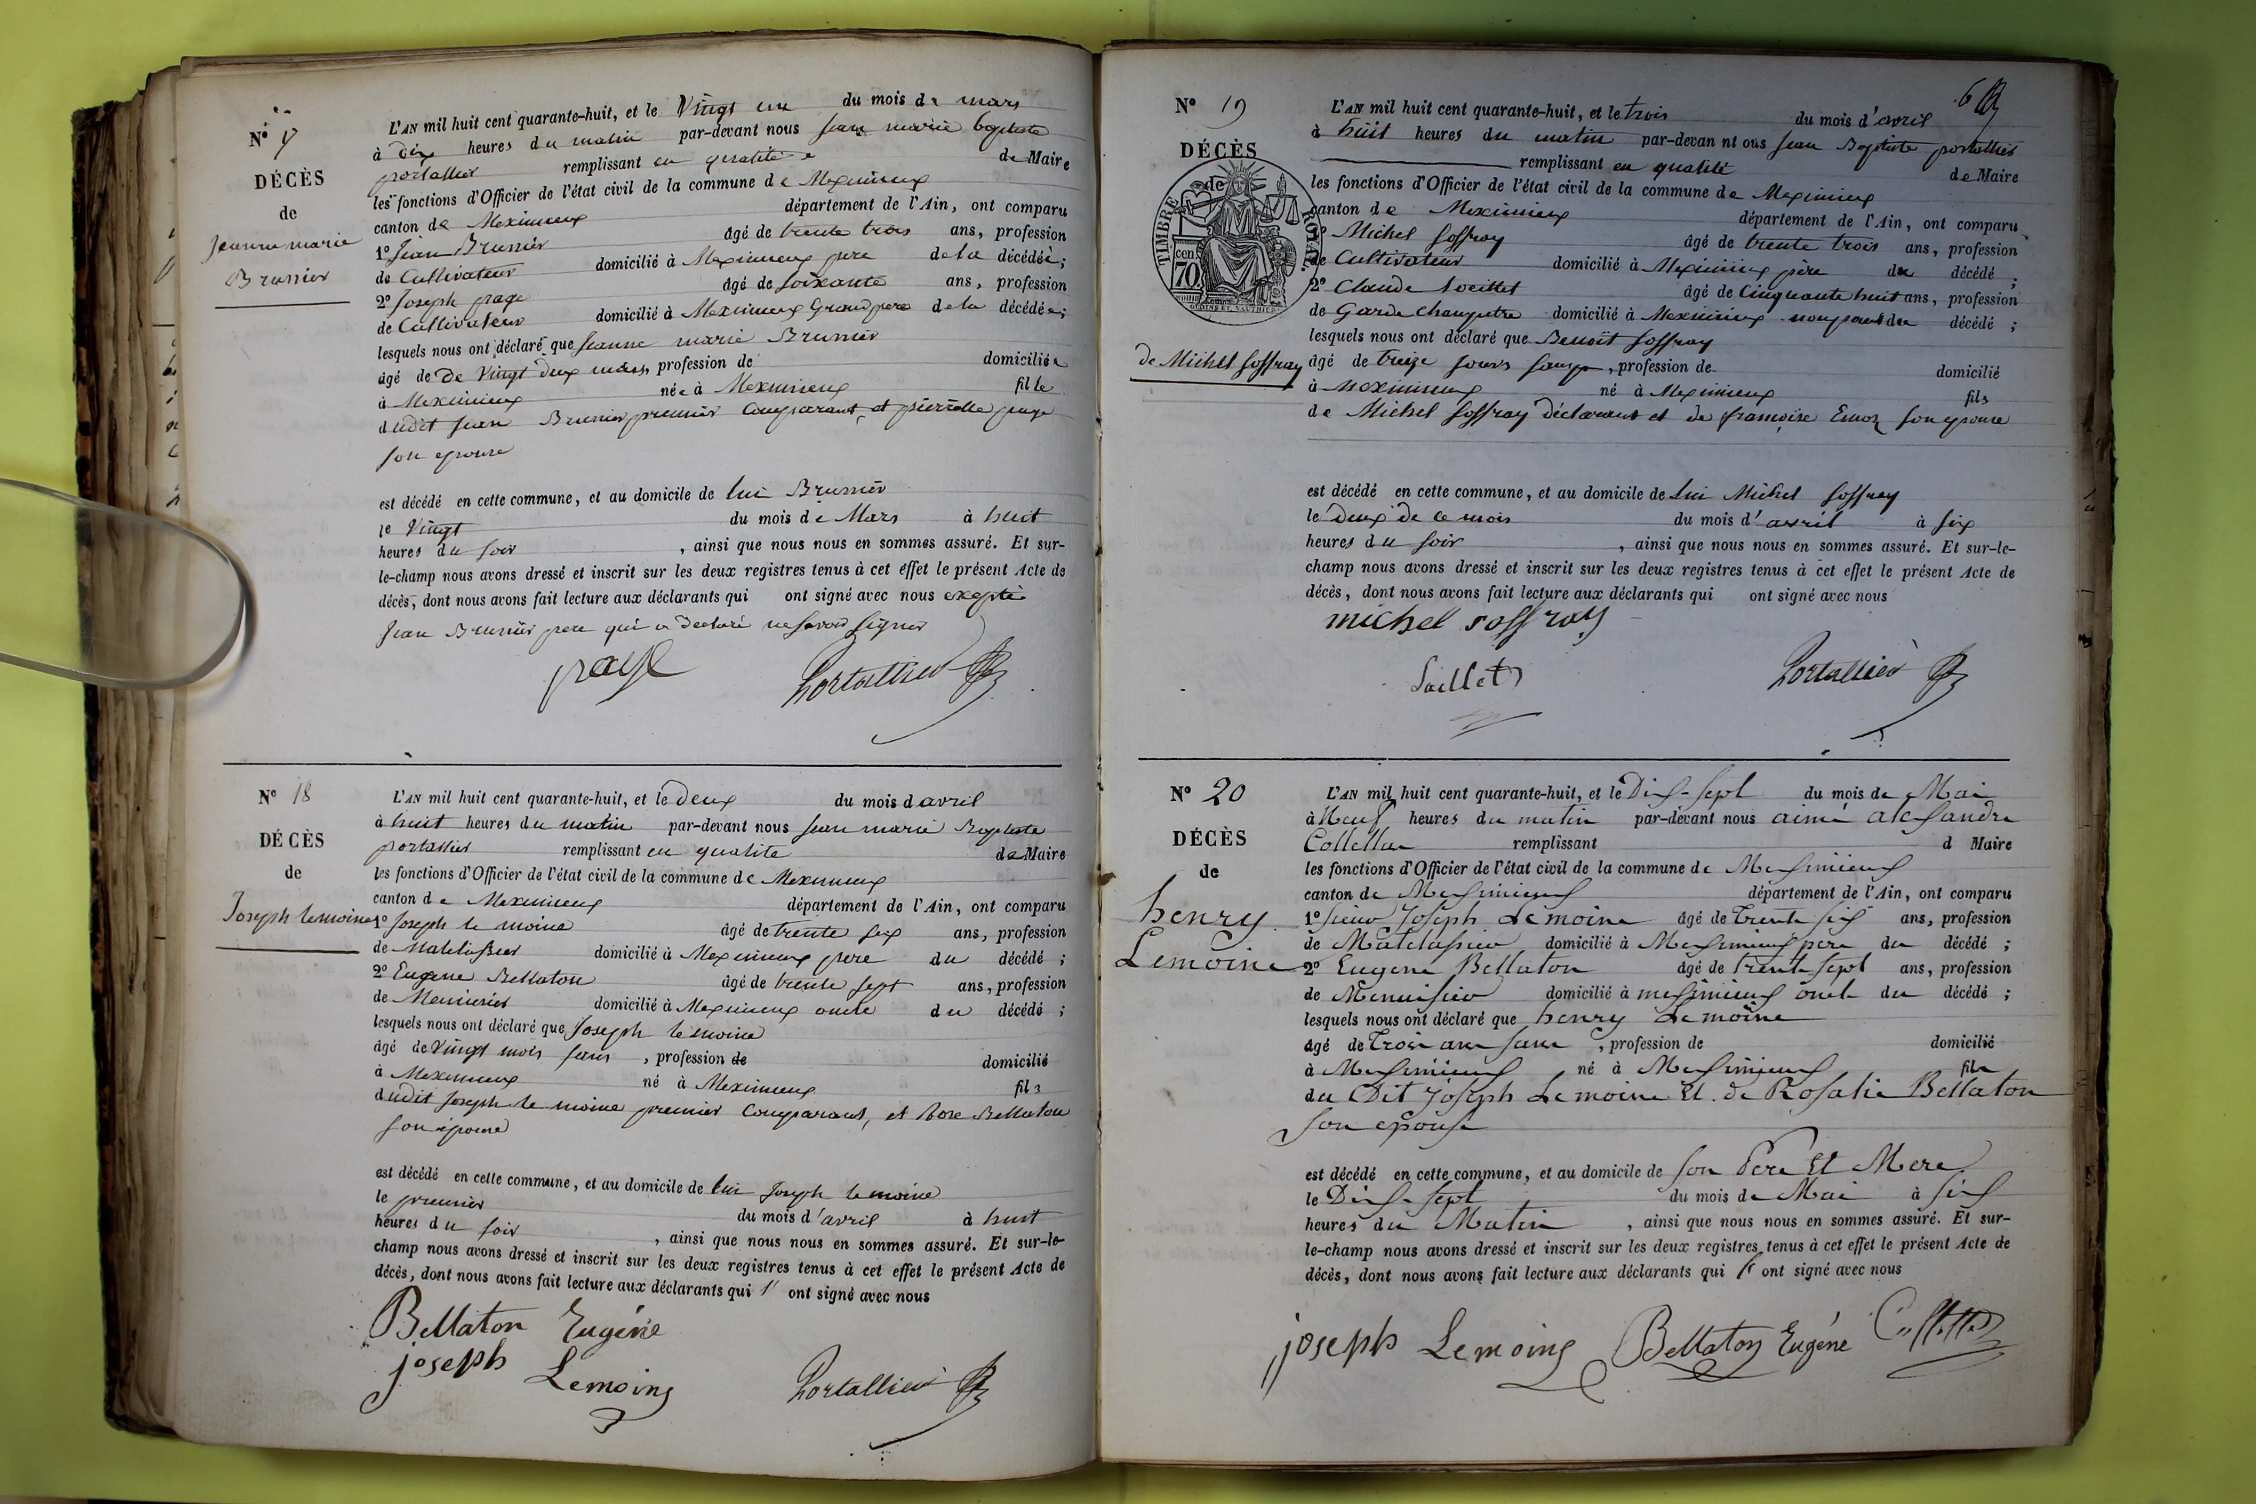 N° 17
DÉCÈS
de
Jeanne marie
Brunier
L'AN mil huit cent quarante-huit, et le Vingt un du mois de mars
à dix heures du matin par-devant nous jean marie baptiste
portallier remplissant en qualité de Maire
les fonctions d'Officier de l'état civil de la commune de Meximieux
canton de Meximieux département de l'Ain, ont comparu
1° Jean Brunier âgé de trente trois ans, profession
de Cultivateur domicilié à Meximieux pere de la décédée;
2° Joseph page âgé de soixante ans, profession
de Cultivateur domicilié à Meximieux Grand pere de la décédée;
lesquels nous ont déclaré que Jeanne marie Brunier
âgé de de Vingt deux mois, profession de domiciliée
à Meximieux née à Meximieux fille
dudit jean Brunier premier Comparant, et pierrette page
son epouse
est décédé en cette commune, et au domicile de lui Brunier
le Vingt du mois de Mars à huit
heures du soir , ainsi que nous nous en sommes assuré. Et sur-
le-champ nous avons dressé et inscrit sur les deux registres tenus à cet effet le présent Acte de
décès, dont nous avons fait lecture aux déclarants qui ont signé avec nous excepté
Jean Brunier pere qui a declaré ne savoir signer
page Portallier
N° 18
DÉCÈS
de
Joseph lemoine
L'AN mil huit cent quarante-huit, et le deux du mois d avril
à huit heures du matin par-devant nous jean marie Baptiste
portallier remplissant en qualité de Maire
les fonctions d'Officier de l'état civil de la commune de Meximieux
canton de Meximieux département de l'Ain, ont comparu
1° Joseph le moine âgé de trente six ans, profession
de Matelassier domicilié à Meximieux pere du décédé ;
2° Eugene Bellaton âgé de trente sept ans, profession
de Menuisier domicilié à Meximieux oncle du décédé ;
lesquels nous ont déclaré que Joseph le moine
âgé de Vingt mois sans , profession de domicilié
à Meximieux né à Meximieux fils
dudit Joseph le moine premier Comparant, et Rose Bellaton
son epouse
est décédé en cette commune, et au domicile de lui Joseph le moine
le premier du mois d'avril à huit
heures du soir , ainsi que nous nous en sommes assuré. Et sur-le-
champ nous avons dressé et inscrit sur les deux registres tenus à cet effet le présent Acte de
décès, dont nous avons fait lecture aux déclarants qui l' ont signé avec nous
Bellaton Eugéne
joseph Lemoine Portallier
6
N° 19
DÉCÈS
de
TIMBRE ROYAL
70 cen
de Michel Soffray
L'AN mil huit cent quarante-huit, et le trois du mois d'avril
à huit heures du matin par-devan nt ous jean Baptiste portallier
remplissant en qualité de Maire
les fonctions d'Officier de l'état civil de la commune de Meximieux
canton de Meximieux département de l'Ain, ont comparu
1° Michel Soffray âgé de trente trois ans, profession
de Cultivateur domicilié à Meximieux père du décédé ;
2° Claude soeillet âgé de Cinquante huit ans, profession
de Garde Champetre domicilié à Meximieux non parent du décédé ;
lesquels nous ont déclaré que Benoît Soffray
âgé de treize jours sans , profession de domicilié
à Meximieux né à Meximieux fils
de Michel Soffray déclarant et de françoise son epouse
est décédé en cette commune, et au domicile de lui Michel Soffray
le deux de ce mois du mois d'avril à six
heures du soir , ainsi que nous nous en sommes assuré. Et sur-le-
champ nous avons dressé et inscrit sur les deux registres tenus à cet effet le présent Acte de
décès, dont nous avons fait lecture aux déclarants qui ont signé avec nous
michel soffray
Portallier
N° 20
DÉCÈS
de
henry
Lemoine
L'AN mil huit cent quarante-huit, et le Dix-Sept du mois de Mai
à Neuf heures du matin par-devant nous aimé alexandre
remplissant d Maire
les fonctions d'Officier de l'état civil de la commune de Meximieux
canton de Meximieux département de l'Ain, ont comparu
1° Sieur Joseph Lemoine âgé de Trente Six ans, profession
de Matelassier domicilié à Meximieux pere du décédé ;
2° Eugene Bellaton âgé de trente Sept ans, profession
de Menuisier domicilié à meximieux oncle du décédé ;
lesquels nous ont déclaré que henry Lemoine
âgé de Trois ans sans , profession de domicilié
à Meximieux né à Meximieux fils
du Dit Joseph Lemoine Et de Rosalie Bellaton
Son epouse
est décédé en cette commune, et au domicile de son Pere Et Mere
le Dix-Sept du mois de Mai à Six
heures du Matin , ainsi que nous nous en sommes assuré. Et sur-
le-champ nous avons dressé et inscrit sur les deux registres tenus à cet effet le présent Acte de
décès, dont nous avons fait lecture aux déclarants qui ont signé avec nous
joseph Lemoine Bellaton Eugéne